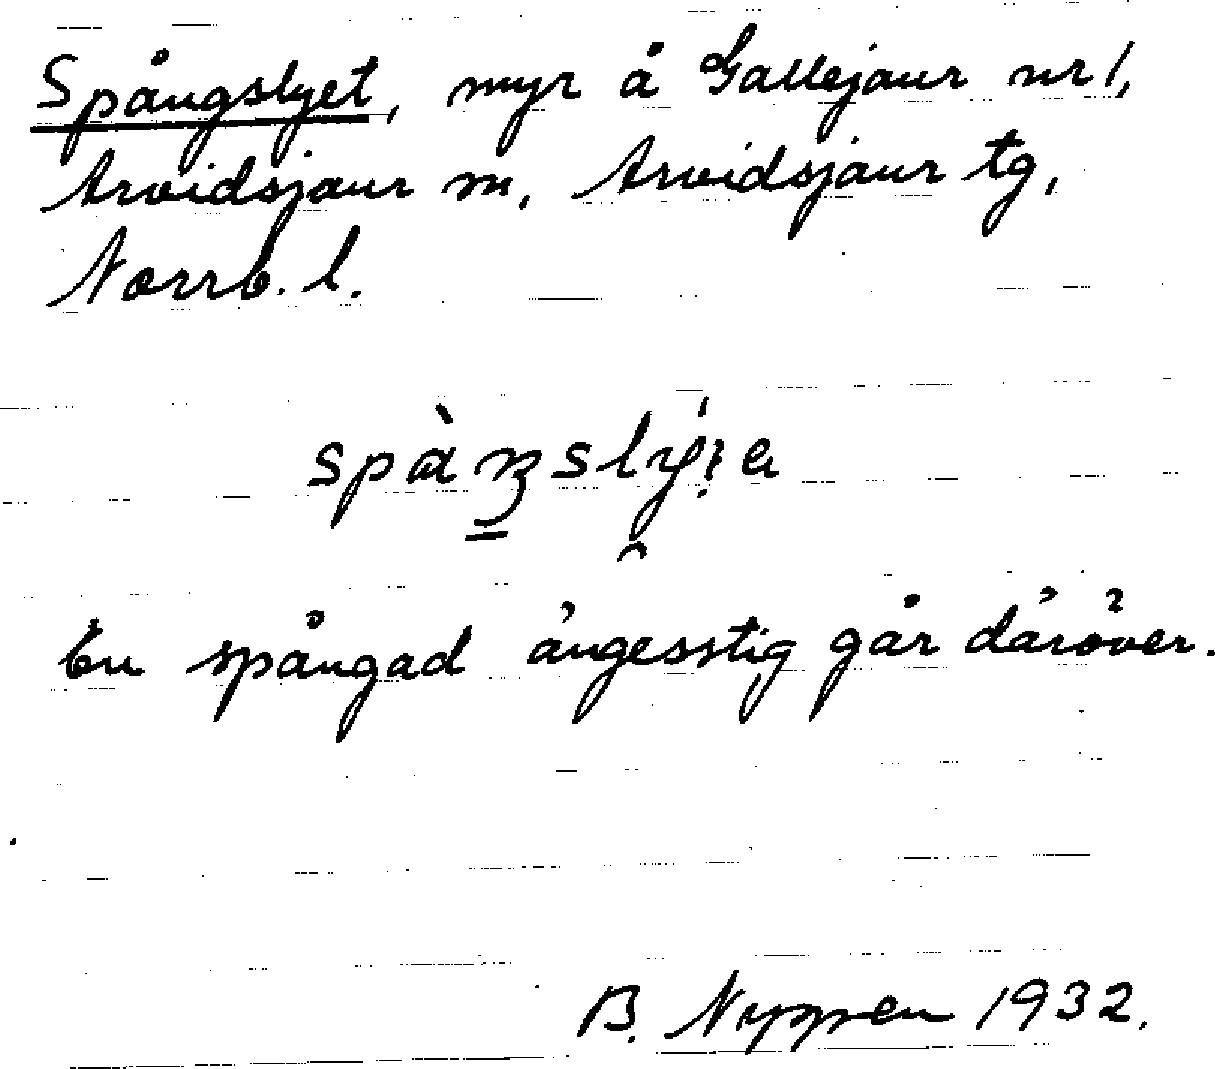 Spångslyet, myr å Gallejaur nr 1,
Arvidsjaur sn, Arvidsjaur tg,
Norrb. l.
En spångad ängesstig går däröver.
B. Nyppen 1932.